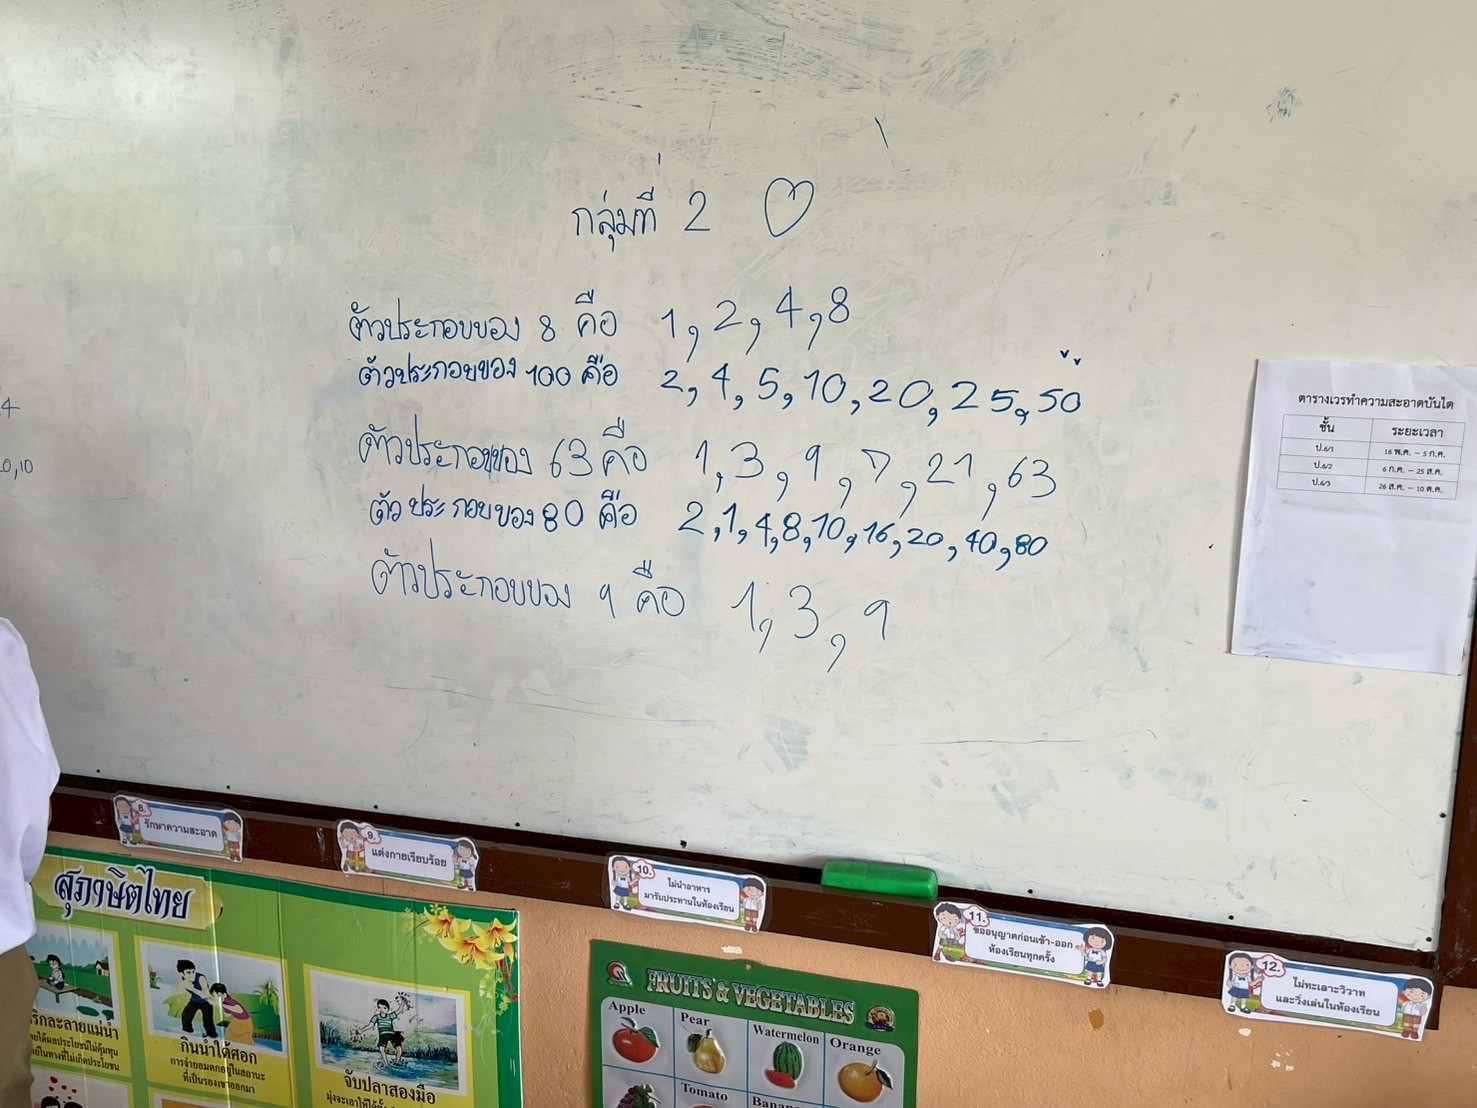 กลุ่มที่ 2
ตัวประกอบของ 8 คือ 1, 2, 4, 8
ตัวประกอบของ 100 คือ 2, 4, 5, 10, 20, 25, 50
ตัวประกอบของ 63 คือ 1, 3, 9, 7, 21, 63
ตัวประกอบของ 80 คือ 2, 1, 4, 8, 10, 16, 20, 40, 80
ตัวประกอบของ 9 คือ 1, 3, 9
4
0,10
ตารางเวรทำความสะอาดบันได
ชั้น ระยะเวลา
ป.6/1 16 พ.ค. – 5 ก.ค.
ป.6/2 6 ก.ค. – 25 ส.ค.
ป.6/3 26 ส.ค. – 10 ต.ค.
8.
รักษาความสะอาด
9.
แต่งกายเรียบร้อย
10.
ไม่นำอาหาร
มารับประทานในห้องเรียน
11.
ขออนุญาตก่อนเข้า-ออก
ห้องเรียนทุกครั้ง
12.
ไม่ทะเลาะวิวาท
และวิ่งเล่นในห้องเรียน
สุภาษิตไทย
ริกละลายแม่น้ำ
กินน้ำใต้ศอก
การจำยอมตกอยู่ในสถานะ
ที่เป็นรองเขาออกมา
จับปลาสองมือ
FRUITS & VEGETABLES
Apple Pear Watermelon Orange
Tomato Banan